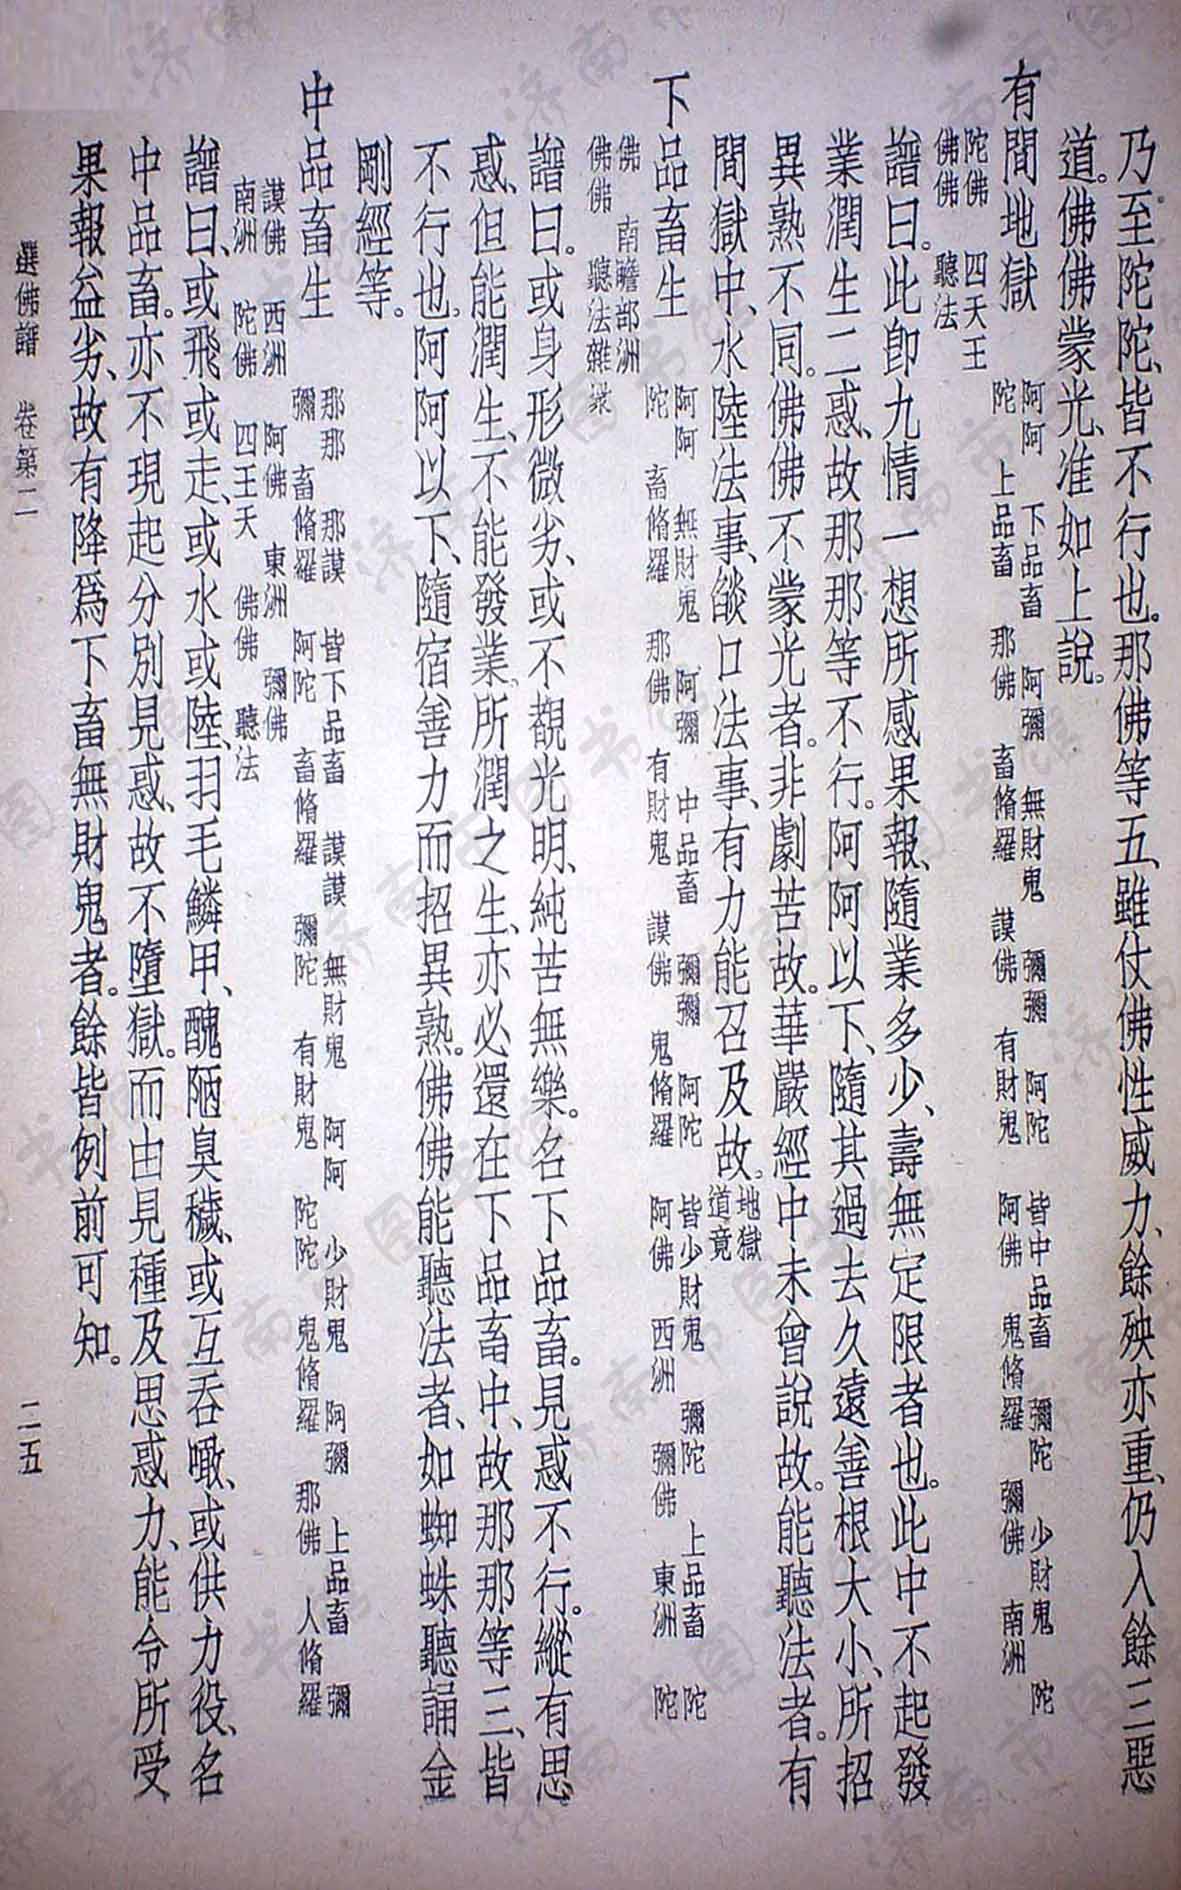 乃至陀陀、皆不行也。那佛等五、雖仗佛性威力、餘殃亦重、仍入餘三惡
道。佛佛蒙光、准如上說。
有間地獄
阿阿 下品畜 阿彌 無財鬼 彌彌 阿陀 皆中品畜 彌陀 少財鬼 陀
陀 上品畜 那佛 畜脩羅 謨佛 有財鬼 阿佛 鬼脩羅 彌佛 南洲
陀佛 四天王
佛佛 聽法
譜曰。此卽九情一想所感果報、隨業多少、壽無定限者也。此中不起發
業潤生二惑、故那那等不行。阿阿以下、隨其過去久遠善根大小、所招
異熟不同。佛佛不蒙光者。非劇苦故。華嚴經中未曾說故。能聽法者。有
間獄中、水陸法事、燄口法事、有力能召及故。地獄道竟
下品畜生
阿阿 無財鬼 阿彌 中品畜 彌彌 阿陀 皆少財鬼 彌陀 上品畜 陀
陀 畜脩羅 那佛 有財鬼 謨佛 鬼脩羅 阿佛 西洲 彌佛 東洲 陀
佛 南瞻部洲
佛佛 聽法雜衆
譜曰。或身形微劣、或不覩光明、純苦無樂。名下品畜。見惑不行。縱有思
惑、但能潤生、不能發業、所潤之生、亦必還在下品畜中、故那那等三、皆
不行也。阿阿以下、隨宿善力而招異熟。佛佛能聽法者、如蜘蛛聽誦金
剛經等。
中品畜生
那那 那謨 皆下品畜 謨謨 無財鬼 阿阿 少財鬼 阿彌 上品畜 彌
彌 畜脩羅 阿陀 畜脩羅 彌陀 有財鬼 陀陀 鬼脩羅 那佛 人脩羅
謨佛 西洲 阿佛 東洲 彌佛
南洲 陀佛 四王天 佛佛 聽法
譜曰、或飛或走、或水或陸、羽毛鱗甲、醜陋臭穢、或互吞噉、或供力役、名
中品畜。亦不現起分別見惑、故不墮獄。而由見種及思惑力、能令所受
果報益劣、故有降爲下畜無財鬼者。餘皆例前可知。
選佛譜 卷第二 二五